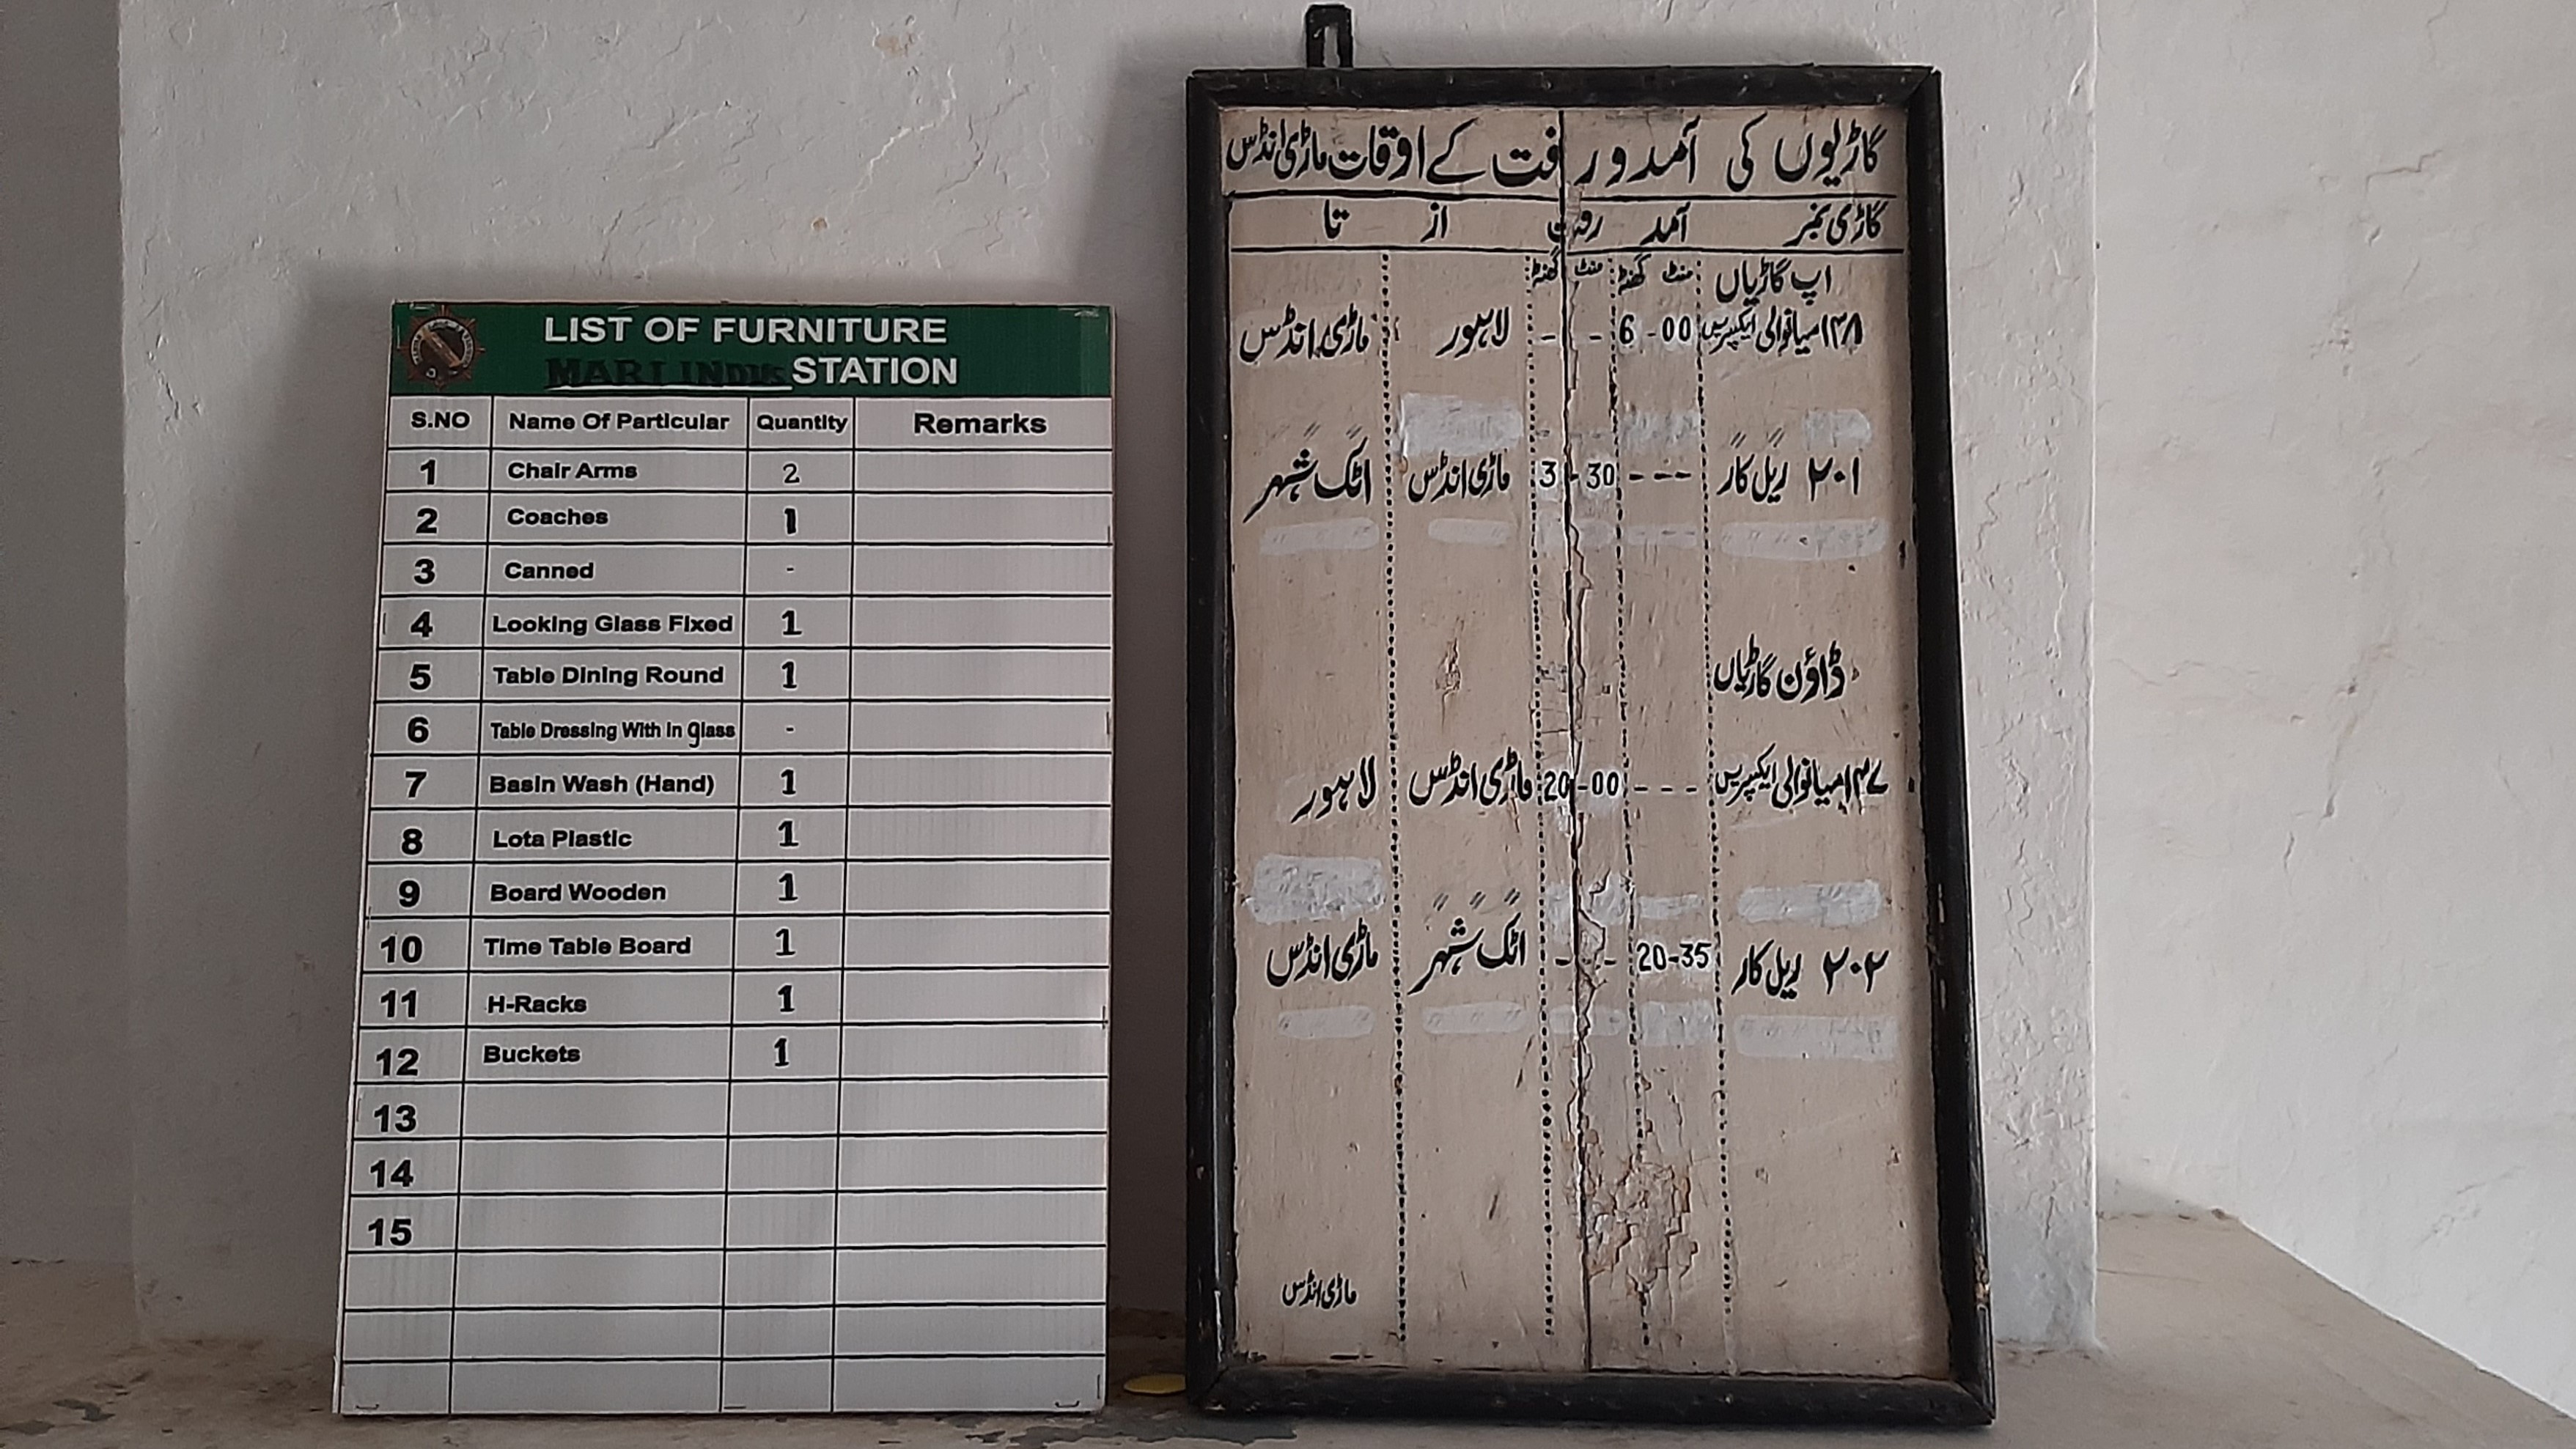 LIST OF FURNITURE
MARI INDUS STATION
S.NO Name Of Particular Quantity Remarks
1 Chair Arms 2
2 Coaches 1
3 Canned -
4 Looking Glass Fixed 1
5 Table Dining Round 1
6 Table Dressing With in glass -
7 Basin Wash (Hand) 1
8 Lota Plastic 1
9 Board Wooden 1
10 Time Table Board 1
11 H-Racks 1
12 Buckets 1
13
14
15
گاڑیوں کی آمدورفت کے اوقات ماڑی انڈس
گاڑی نمبر آمد روانگی از تا
اپ گاڑیاں منٹ گھنٹہ منٹ گھنٹہ
۱۴۸ میانوالی ایکسپریس 6-00 - - لاہور ماڑی انڈس
۲۰۱ ریل کار - - - 3-30 ماڑی انڈس اٹک شہر
ڈاؤن گاڑیاں
۱۴۷ میانوالی ایکسپریس - - - 20-00 ماڑی انڈس لاہور
۲۰۲ ریل کار 20-35 - - اٹک شہر ماڑی انڈس
ماڑی انڈس